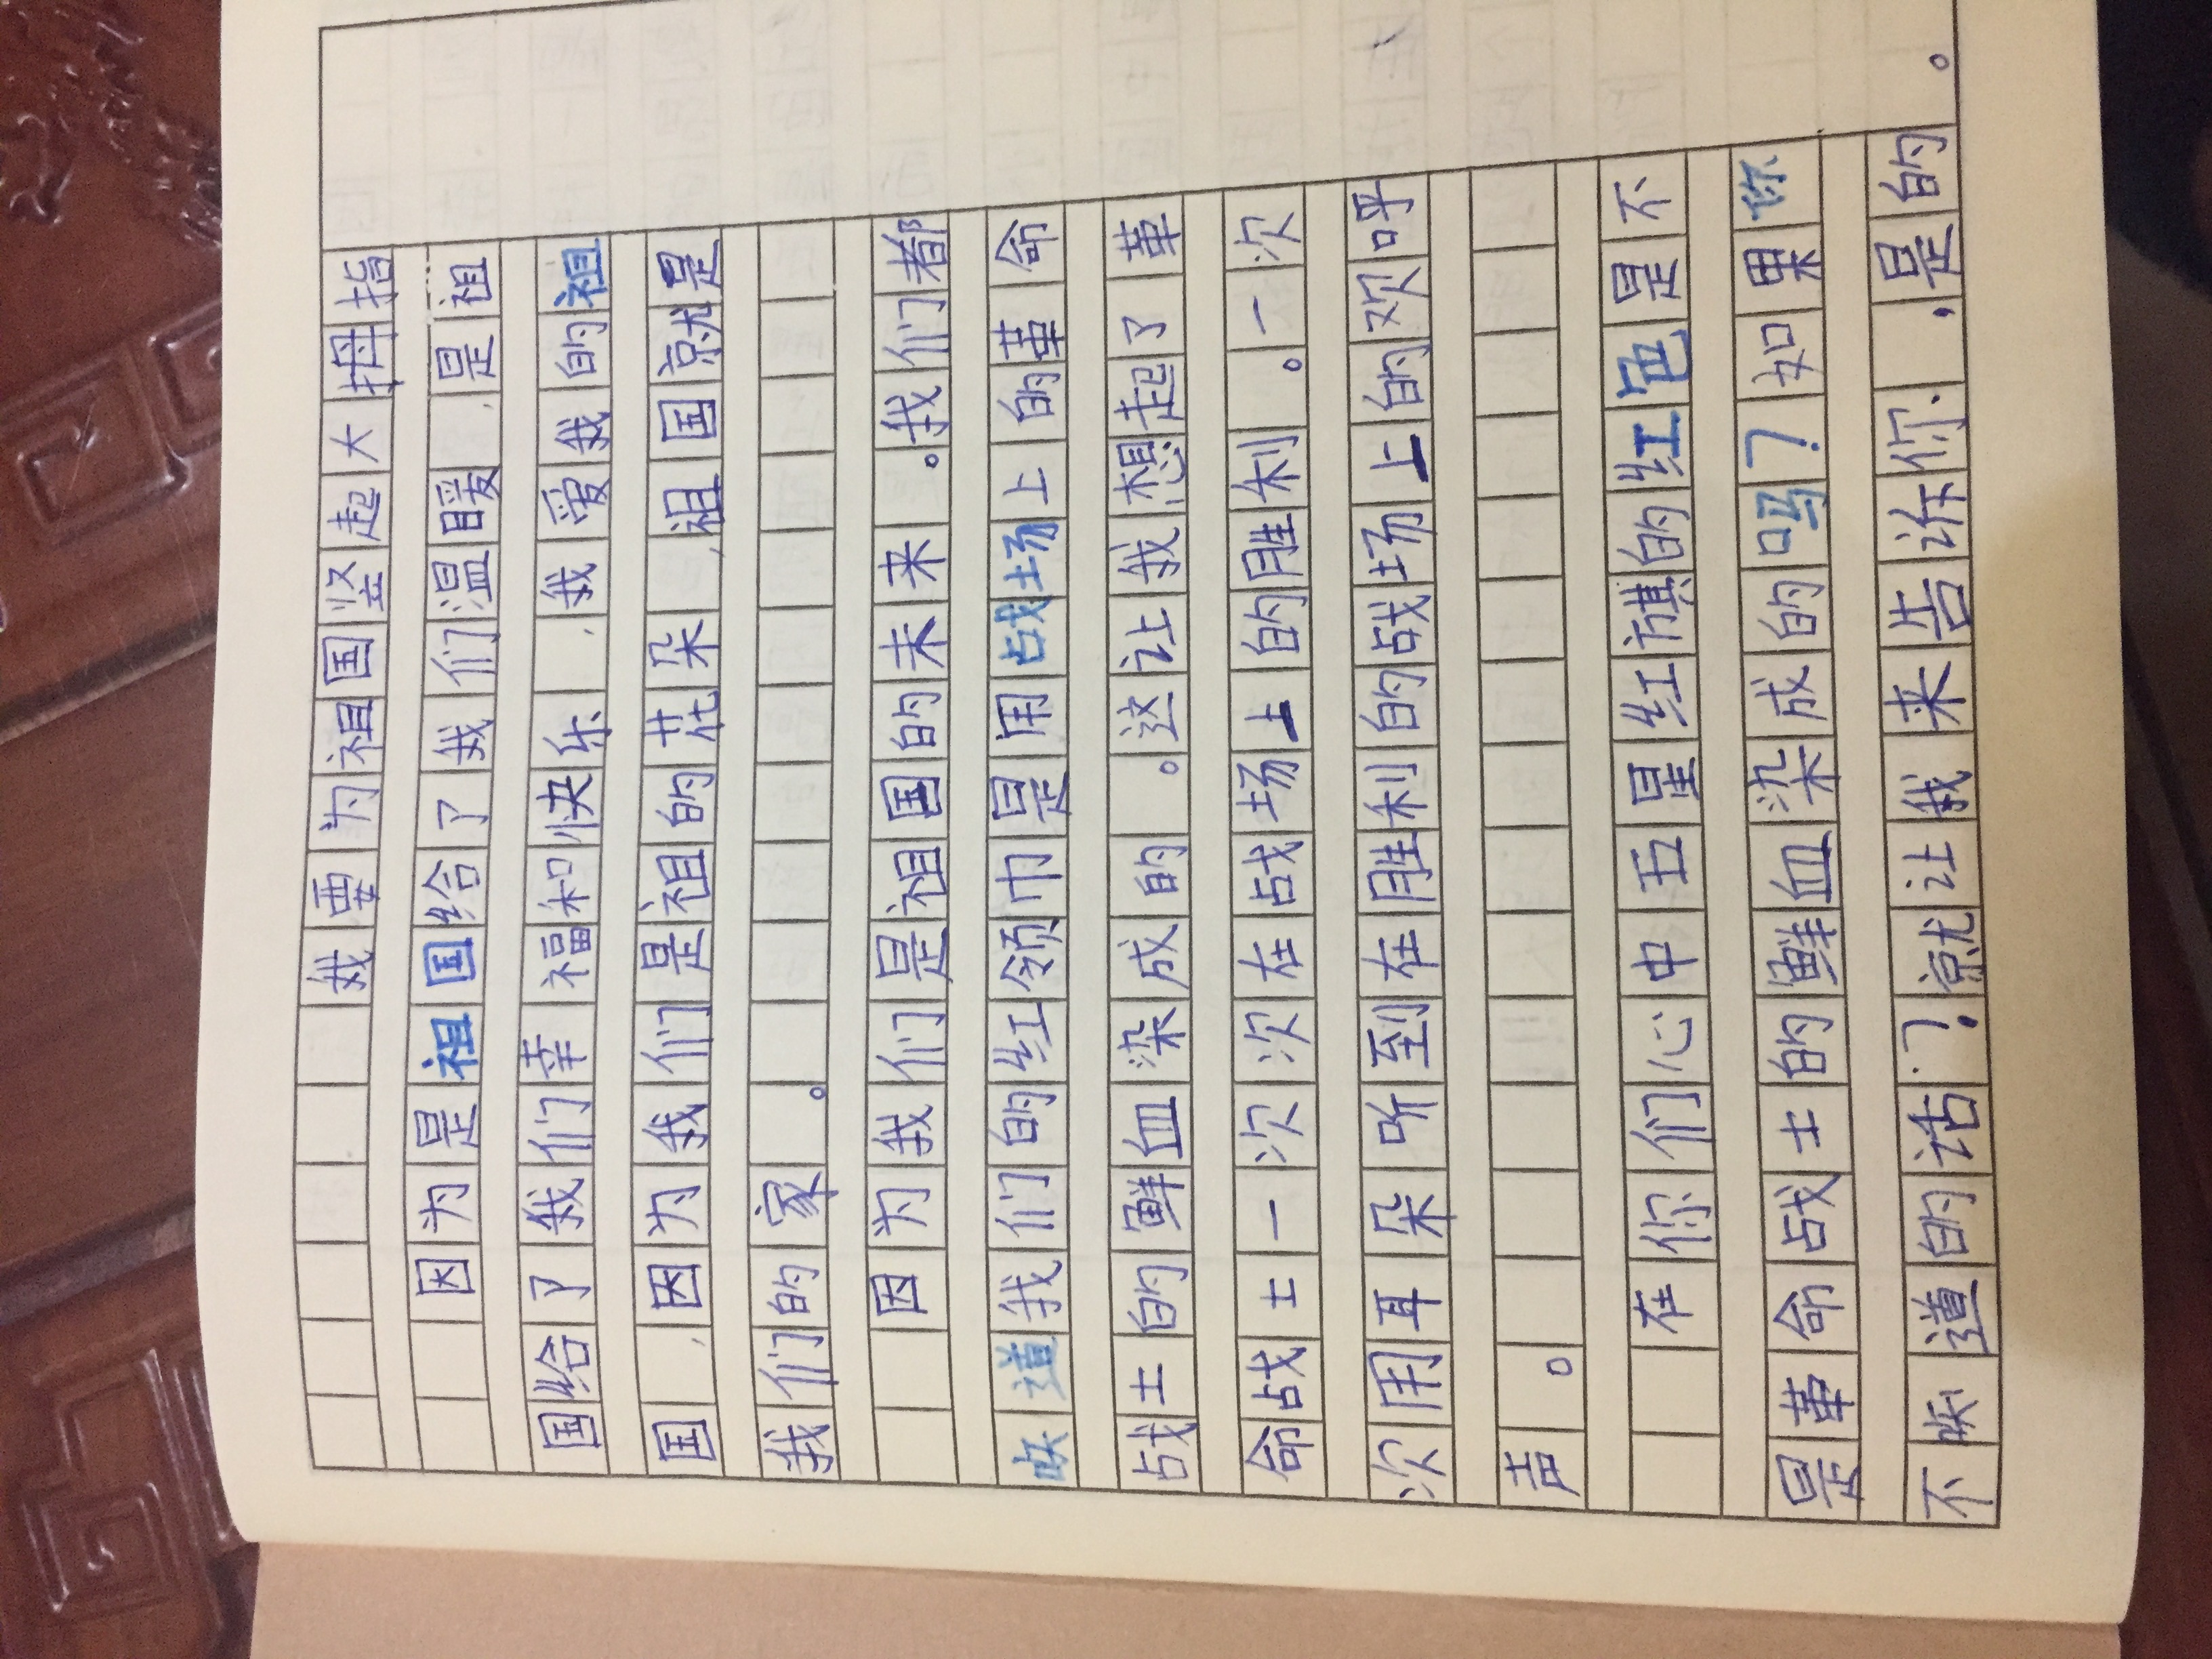 我要为祖国竖起大拇指
因为是祖国给了我们温暖,是祖
国给了我们幸福和快乐,我爱我的祖
国,因为我们是祖的花朵,祖国就是
我们的家。
因为我们是祖国的未来。我们都
知道我们的红领巾是用战场上的革命
战士的鲜血染成的。这让我想起了革
命战士一次次在战场上的胜利。一次
次用耳朵听到在胜利的战场上的欢呼
声。
在你们心中五星红旗的红色是不
是革命战士的鲜血染成的吗?如果你
不知道的话?就让我来告诉你,是的。